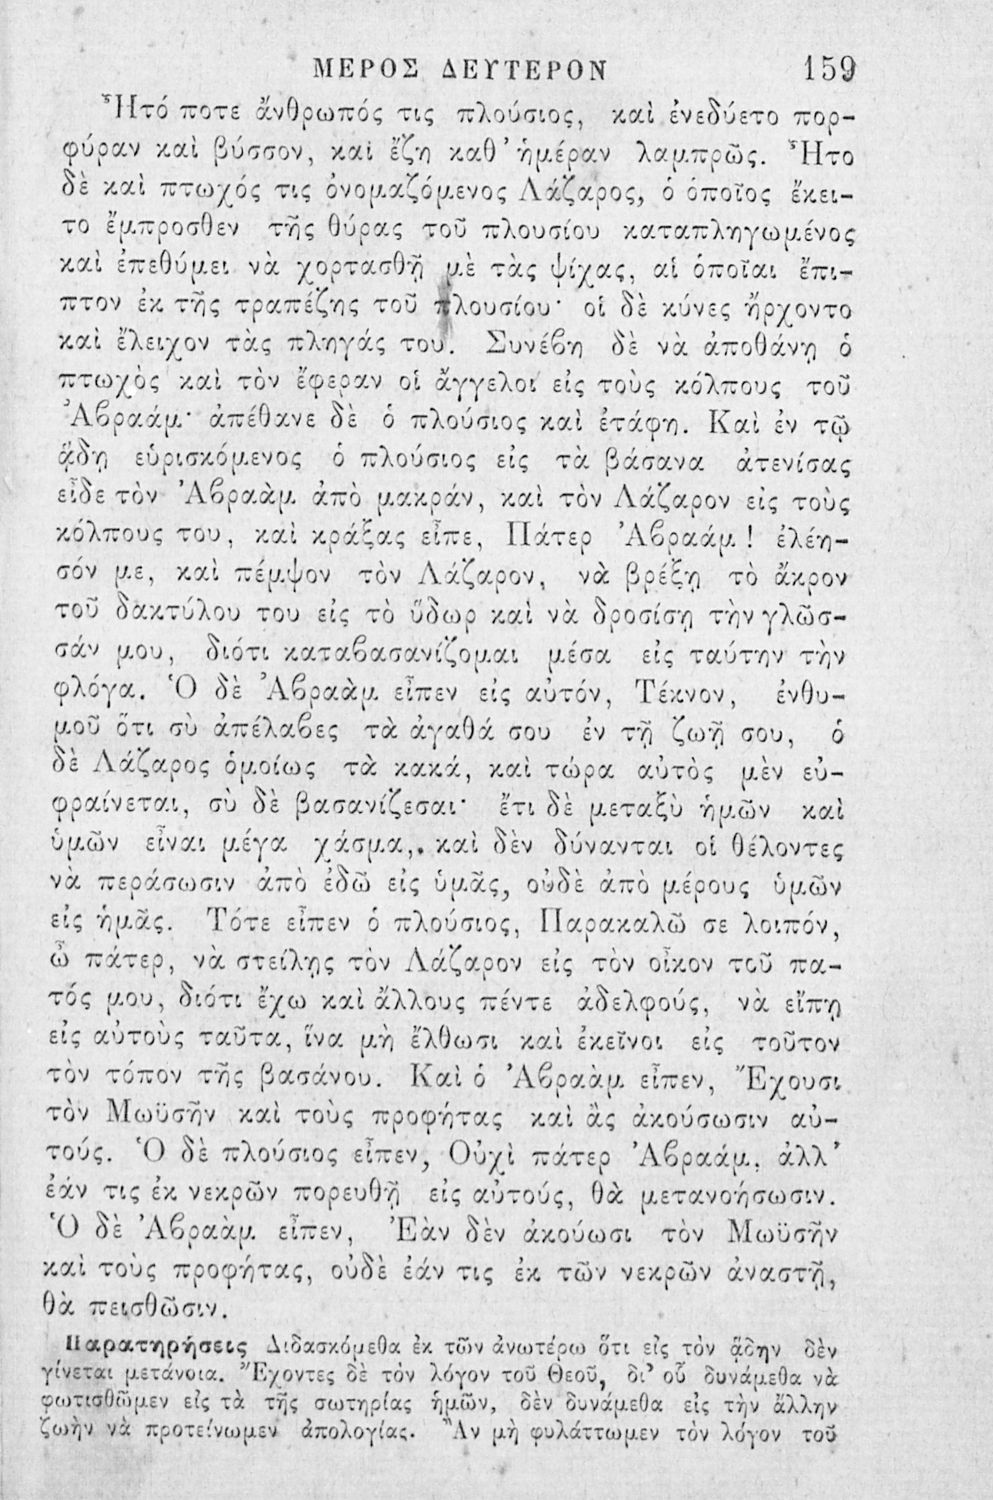 ΜΕΡΟΣ ΔΕΥΤΕΡΟΝ 159
Ἦτό ποτε ἄνθρωπός τις πλούσιος, καὶ ἐνεδύετο πορ-
φύραν καὶ βύσσον, καὶ ἔζη καθ' ἡμέραν λαμπρῶς. Ἦτο
δὲ καὶ πτωχός τις ὀνομαζόμενος Λάζαρος, ὁ ὁποῖος ἔκει-
το ἔμπροσθεν τῆς θύρας τοῦ πλουσίου καταπληγωμένος
καὶ ἐπεθύμει νὰ χορτασθῇ μὲ τὰς ψίχας, αἱ ὁποῖαι ἔπι-
πτον ἐκ τῆς τραπέζης τοῦ πλουσίου· οἱ δὲ κύνες ἤρχοντο
καὶ ἔλειχον τὰς πληγάς του. Συνέϐη δὲ νὰ ἀποθάνῃ ὁ
πτωχὸς καὶ τὸν ἔφεραν οἱ ἄγγελοι εἰς τοὺς κόλπους τοῦ
Ἀϐραάμ· ἀπέθανε δὲ ὁ πλούσιος καὶ ἐτάφη. Καὶ ἐν τῷ
ᾅδῃ εὑρισκόμενος ὁ πλούσιος εἰς τὰ βάσανα ἀτενίσας
εἶδε τὸν Ἀϐραὰμ ἀπὸ μακράν, καὶ τὸν Λάζαρον εἰς τοὺς
κόλπους του, καὶ κράξας εἶπε, Πάτερ Ἀϐραάμ! ἐλέη-
σόν με, καὶ πέμψον τὸν Λάζαρον, νὰ βρέξῃ τὸ ἄκρον
τοῦ δακτύλου του εἰς τὸ ὕδωρ καὶ νὰ δροσίσῃ τὴν γλῶσ-
σάν μου, διότι καταϐασανίζομαι μέσα εἰς ταύτην τὴν
φλόγα. Ὁ δὲ Ἀϐραὰμ εἶπεν εἰς αὐτόν, Τέκνον, ἐνθυ-
μοῦ ὅτι σὺ ἀπέλαϐες τὰ ἀγαθά σου ἐν τῇ ζωῇ σου, ὁ
δὲ Λάζαρος ὁμοίως τὰ κακά, καὶ τώρα αὐτὸς μὲν εὐ-
φραίνεται, σὺ δὲ βασανίζεσαι· ἔτι δὲ μεταξὺ ἡμῶν καὶ
ὑμῶν εἶναι μέγα χάσμα,. καὶ δὲν δύνανται οἱ θέλοντες
νὰ περάσωσιν ἀπὸ ἐδῶ εἰς ὑμᾶς, οὐδὲ ἀπὸ μέρους ὑμῶν
εἰς ἡμᾶς. Τότε εἶπεν ὁ πλούσιος, Παρακαλῶ σε λοιπόν,
ὦ πάτερ, νὰ στείλῃς τὸν Λάζαρον εἰς τὸν οἶκον τοῦ πα-
τός μου, διότι ἔχω καὶ ἄλλους πέντε ἀδελφούς, νὰ εἴπῃ
εἰς αὐτοὺς ταῦτα, ἵνα μὴ ἔλθωσι καὶ ἐκεῖνοι εἰς τοῦτον
τὸν τόπον τῆς βασάνου. Καὶ ὁ Ἀϐραὰμ εἶπεν, Ἔχουσι
τὸν Μωϋσῆν καὶ τοὺς προφήτας καὶ ἂς ἀκούσωσιν αὐ-
τούς. Ὁ δὲ πλούσιος εἶπεν, Οὐχὶ πάτερ Ἀϐραάμ, ἀλλ'
ἐάν τις ἐκ νεκρῶν πορευθῇ εἰς αὐτούς, θὰ μετανοήσωσιν.
Ὁ δὲ Ἀϐραὰμ εἶπεν, Ἐὰν δὲν ἀκούωσι τὸν Μωϋσῆν
καὶ τοὺς προφήτας, οὐδὲ ἐάν τις ἐκ τῶν νεκρῶν ἀναστῇ,
θὰ πεισθῶσιν.
Παρατηρήσεις Διδασκόμεθα ἐκ τῶν ἀνωτέρω ὅτι εἰς τὸν ᾅδην δὲν
γίνεται μετάνοια. Ἔχοντες δὲ τὸν λόγον τοῦ Θεοῦ, δι' οὗ δυνάμεθα νὰ
φωτισθῶμεν εἰς τὰ τῆς σωτηρίας ἡμῶν, δὲν δυνάμεθα εἰς τὴν ἄλλην
ζωὴν νὰ προτείνωμεν ἀπολογίας. Ἂν μὴ φυλάττωμεν τὸν λόγον τοῦ